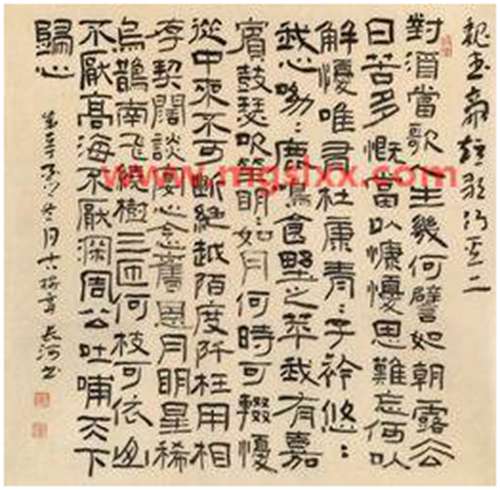 短歌行
對酒當歌人生幾何譬如朝露去
日苦多慨當以慷憂思難忘何以
解憂唯有杜康青：子衿悠：
我心呦：鹿鳴食野之苹我有嘉
賓鼓瑟吹笙明：如月何時可輟憂
從中來不可斷絕越陌度阡枉用相
存契闊談心念舊恩月明星稀
烏鵲南飛繞樹三匝何枝可依山
不厭高海不厭深周公吐哺天下
歸心
月長河書
www.mgslxx.com